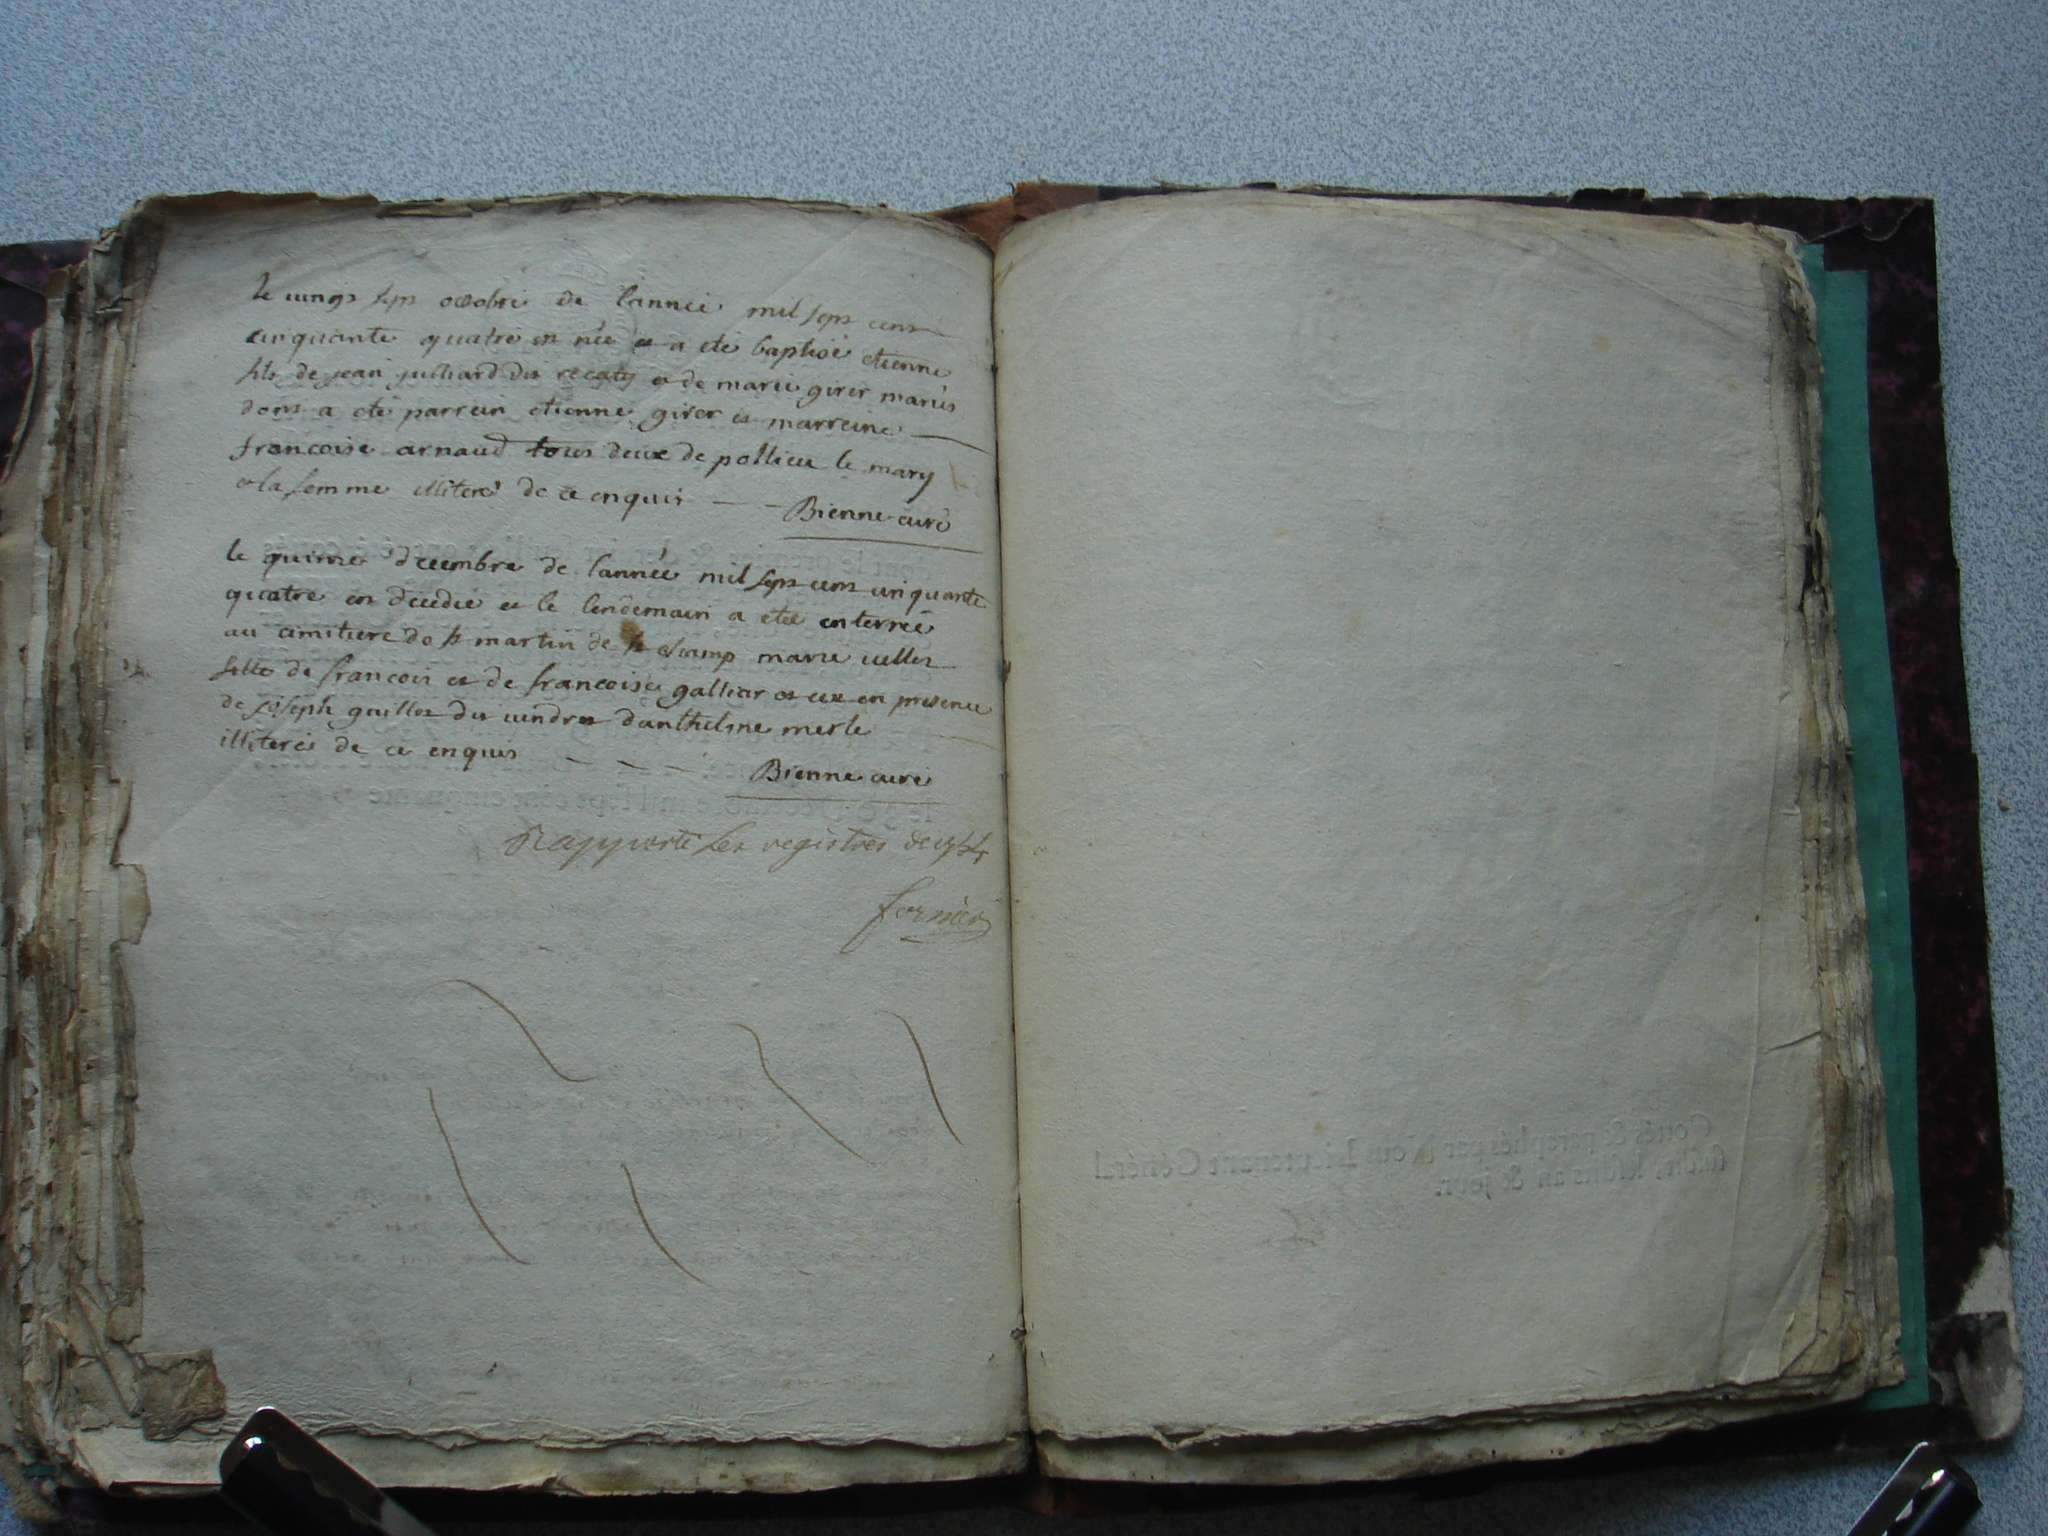 le vingt sept octobre de lannee mil sept cent
cinquante quatre est née et a eté baptisé etienne
fils de jean julliard dit et de marie girer mariés
dont a eté parrein etienne girer et marreine
francoise arnaud tous deux de pollieu le mary
et la femme illiteré de ce enquis - - Bienne curé
le quinze decembre de lannée mil sept cent cinquante
quatre est decedie et le lendemain a eteé enterrée
au cimitiere de st martin de marie vellet
fille de francois et de francoise galliar et ce en presence
de joseph guillot dit danthelme merle
illiterés de ce enquis - - - Bienne curé
Rapporté les registres de 1754
fornier
Cottés & paraphés par Nous Lieutenant Général
susdit, lesdits an & jour.